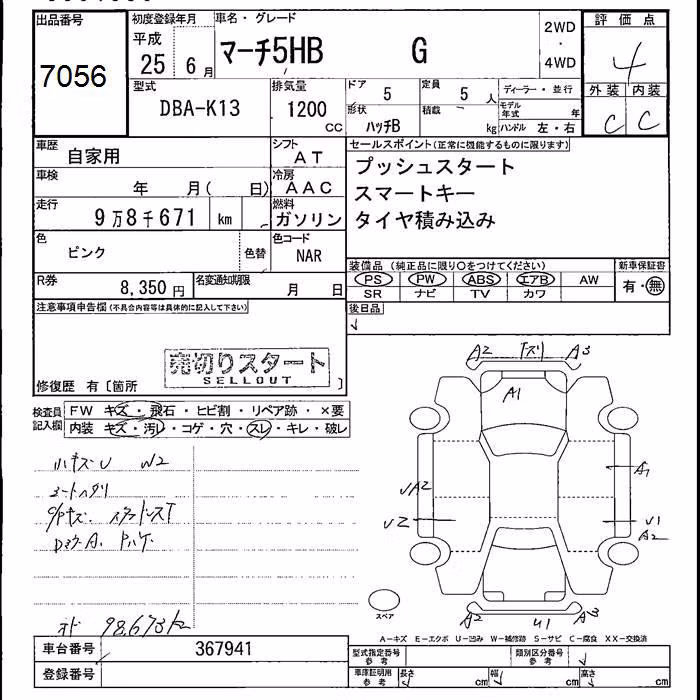 出品番号
7056
初度登録年月
平成
25 6月
車名・グレード
マーチ5HB G
2WD
・
4WD
評価点
4
外装 内装
C C
型式
DBA-K13
排気量
1200
CC
ドア
5
定員
5 人
形状
ハッチB
積載
kg
ディーラー・並行
モデル年式 年
ハンドル 左・右
車歴
自家用
シフト
AT
車検
年 月( 日)
冷房
AAC
走行
9万8千671 km
燃料
ガソリン
色
ピンク
色替
色コード
NAR
R券
8,350円
名変通知期限
月 日
セールスポイント(正常に機能するものに限ります)
プッシュスタート
スマートキー
タイヤ積み込み
装備品 (純正品に限り〇をつけてください)
PS PW ABS エアB AW
SR ナビ TV カワ
新車保証書
有・無
後日品
注意事項申告欄(不具合内容等は具体的に記入して下さい)
売切りスタート
SELLOUT
修復歴 有〔箇所 〕
検査員記入欄
FW キズ・飛石・ヒビ割・リペア跡・×要
内装 キズ・汚レ・コゲ・穴・スレ・キレ・破レ
W2
98,673
A2 A3
A1
A1
UA2
U2
U1
A2
A2 U1 A3
スペア
A-キズ E-エクボ U-凹み W-補修跡 S-サビ C-腐食 XX-交換済
車台番号
367941
登録番号
型式指定番号
参考
類別区分番号
参考
車庫証明用
参考
長さ cm 幅 cm 高さ cm